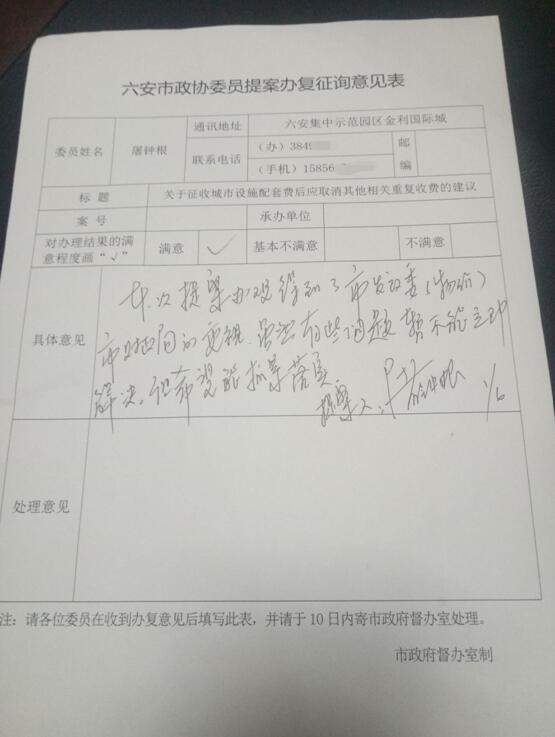 六安市政协委员提案办复征询意见表
委员姓名 屠钟根 通讯地址 六安集中示范园区金利国际城
联系电话 (办)384 邮编
(手机)15856
标题 关于征收城市设施配套费后应取消其他相关重复收费的建议
案号 承办单位
对办理结果的满意程度画“√” 满意 √ 基本不满意 不满意
具体意见 本次提案办理得到了市发改委(物价)
市财政局的重视,虽然有些问题暂不能主动
解决,但希望能抓紧落实。
提案人: 屠钟根 1/6
处理意见
注:请各位委员在收到办复意见后填写此表,并请于10日内寄市政府督办室处理。
市政府督办室制